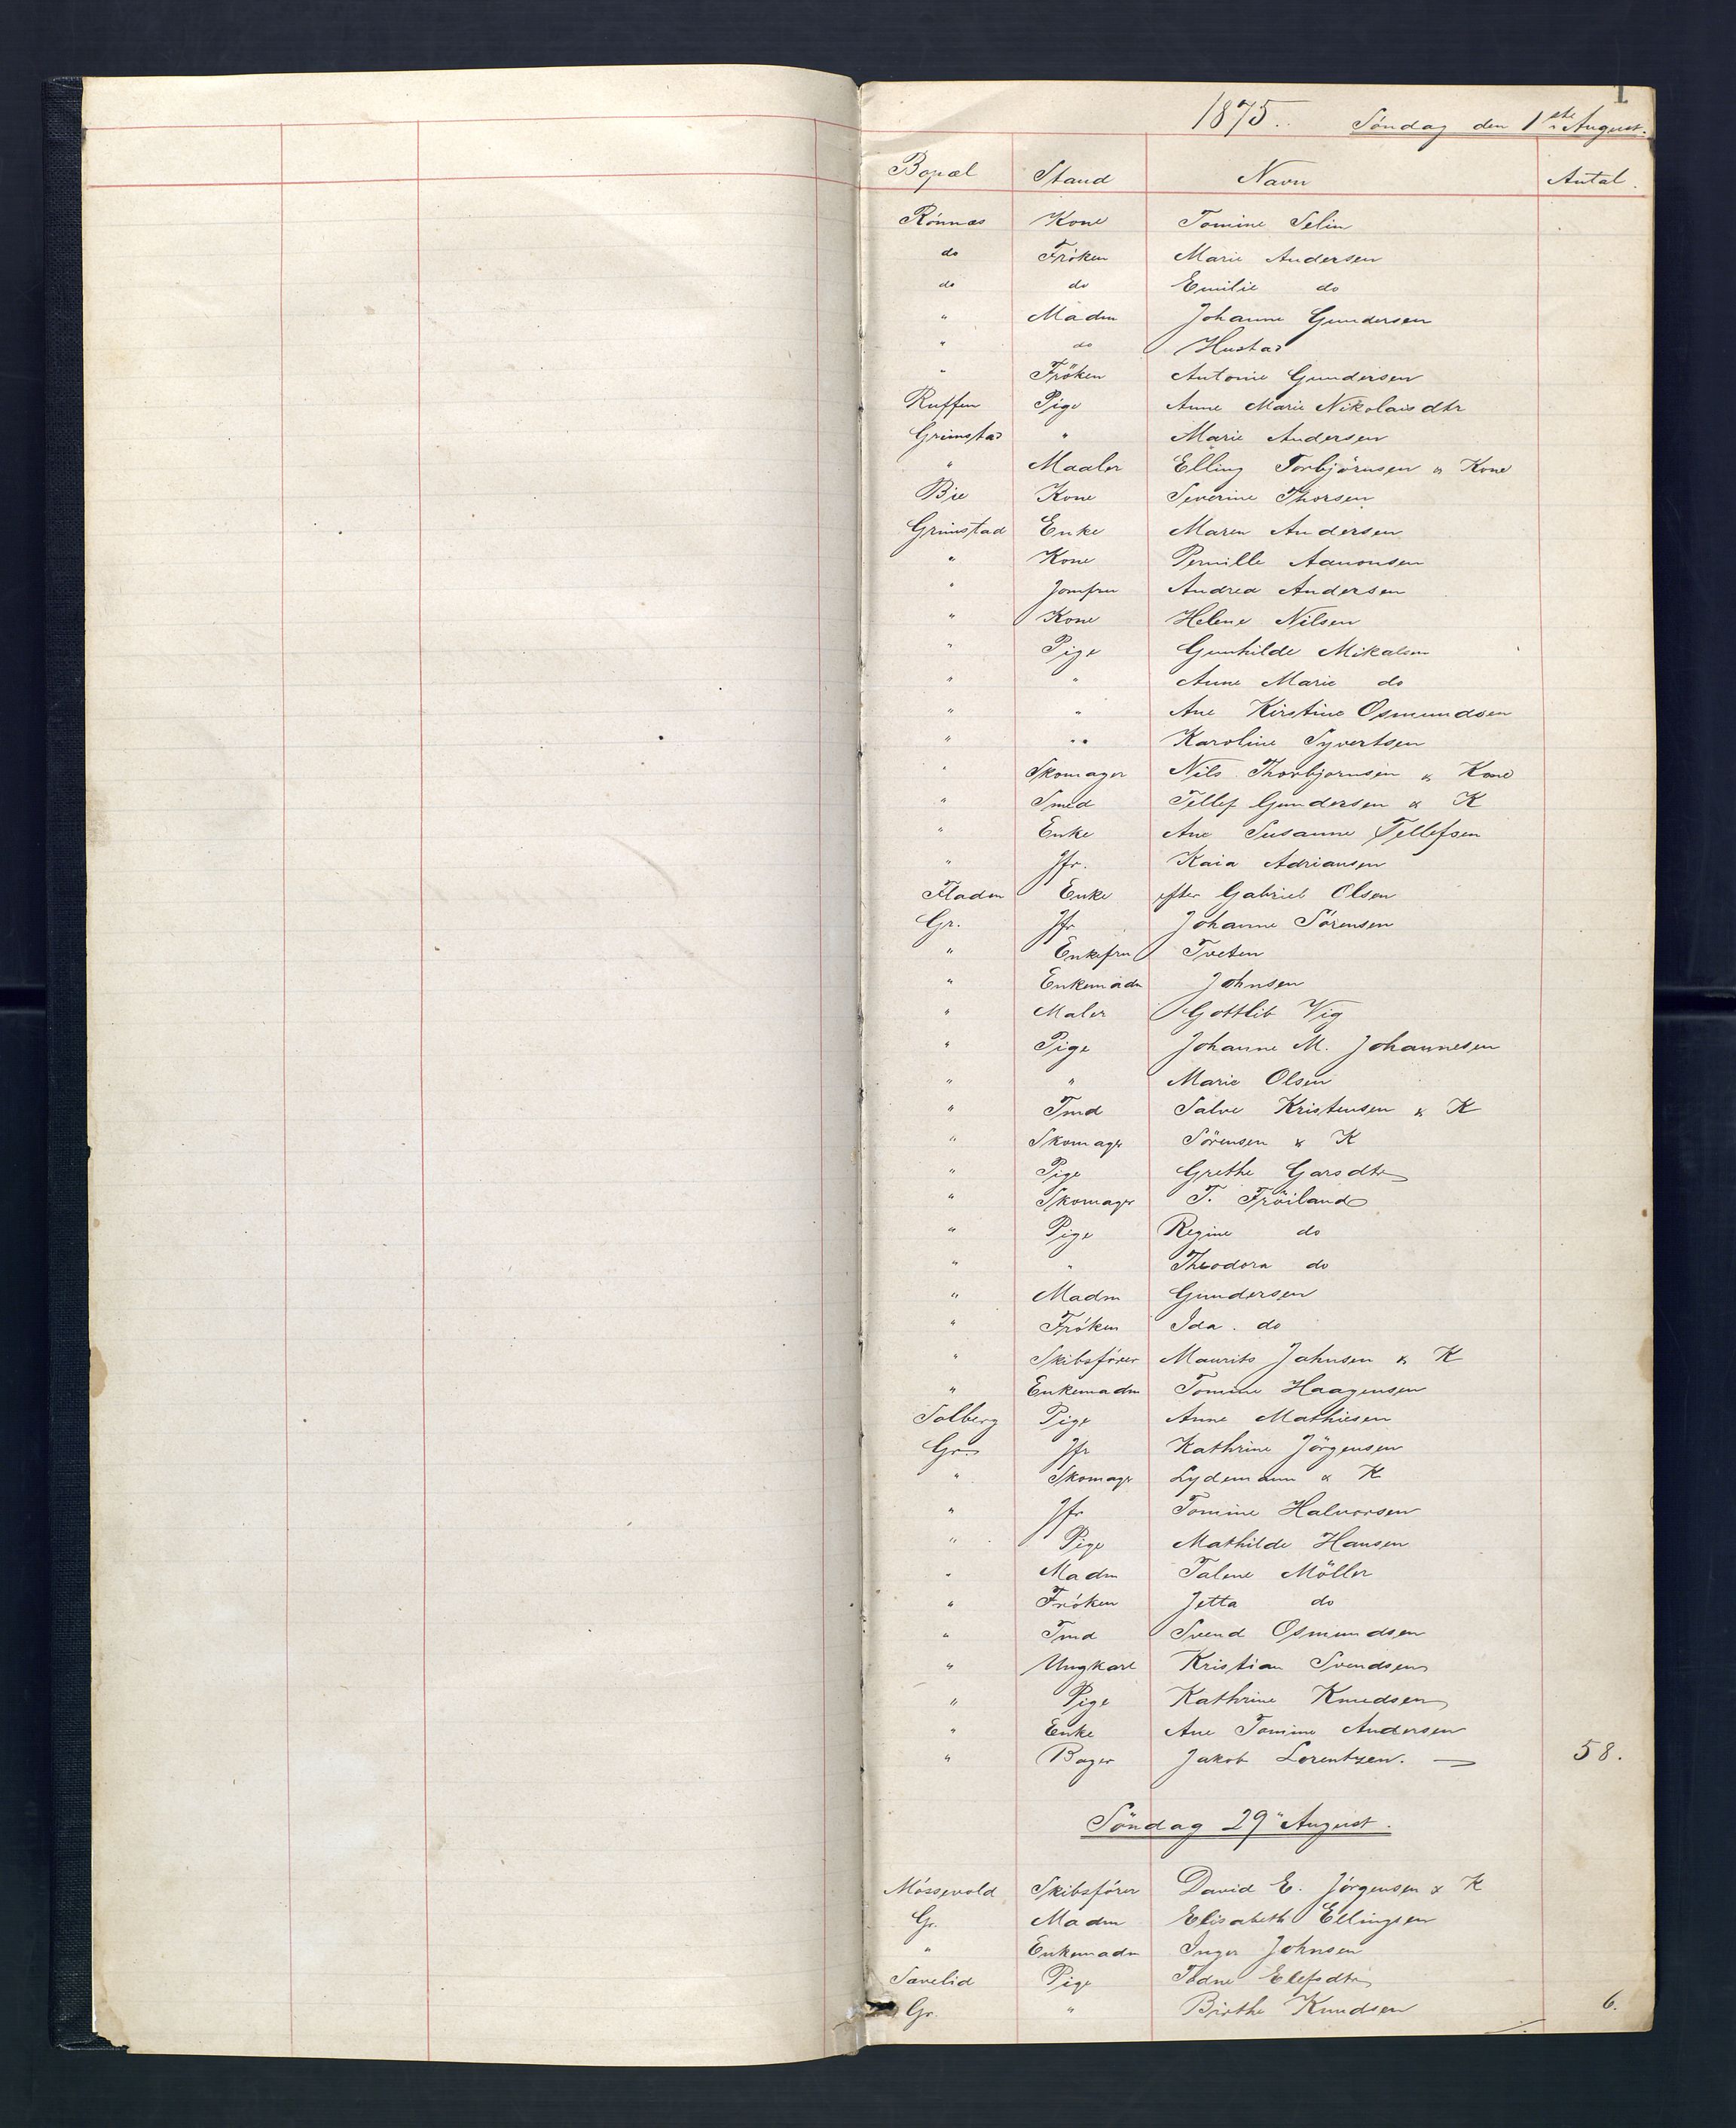 1
1875. Søndag den 1ste August.
Bopæl Stand Navn Antal.
Rønnæs Kone Tomine Selin
do Frøken Marie Andersen
do do Emilie do
" Madm Johanne Gundersen
" do Hustad
" Frøken Antonie Gundersen
Ruffen Pige Anne Marie Nikolaisdtr
Grimstad " Marie Andersen
" Maaler Elling Torbjørnsen & Kone
Bie Kone Severine Thorsen
Grimstad Enke Maren Andersen
" Kone Pernille Aanonsen
" Jomfru Andrea Andersen
" Kone Helene Nilsen
" Pige Gunhilde Mikalsen
" " Anne Marie do
" " Ane Kirstine Osmundsen
" " Karoline Syvertsen
" Skomager Nils Thorbjørnsen & Kone
" Smed Tellef Gundersen & K
" Enke Ane Susanne Tellefsen
" Jfr. Kaia Adriansen
Fladen Enke efter Gabriel Olsen
Gr. Jfr Johanne Sørensen
" Enkefru Tveten
" Enkemadm Johnsen
" Maler Gottlib Vig
" Pige Johanne M. Johannesen
" " Marie Olsen
" Tmd Salve Kristensen & K
" Skomagr Sørensen & K
" Pige Grethe Garsdtr
" Skomagr T. Frøiland
" Pige Regine do
" " Theodora do
" Madm Gundersen
" Frøken Ida do
" Skibsfører Maurits Johnsen & K
" Enkemadm Tomine Haagensen
Solberg Pige Anne Mathiesen
Gr. Jfr Kathrine Jörgensen
" Skomagr Lydemann & K
" Jfr Tomine Halvorsen
" Pige Mathilde Hansen
" Madm Talene Möller
" Frøken Jetta do
" Tmd Svend Osmundsen
" Ungkarl Kristian Svendsen
" Pige Kathrine Knudsen
" Enke Ane Tomine Andersen
" Bager Jakob Lorentzen. — 58.
Söndag 29" August.
Møssevold Skibsfører David E. Jörgensen & K
Gr. Madm Elisabeth Ellingsen
" Enkemadm Inger Johnsen
Sævelid Pige Elefsdtr
Gr. " Birthe Knudsen 6.